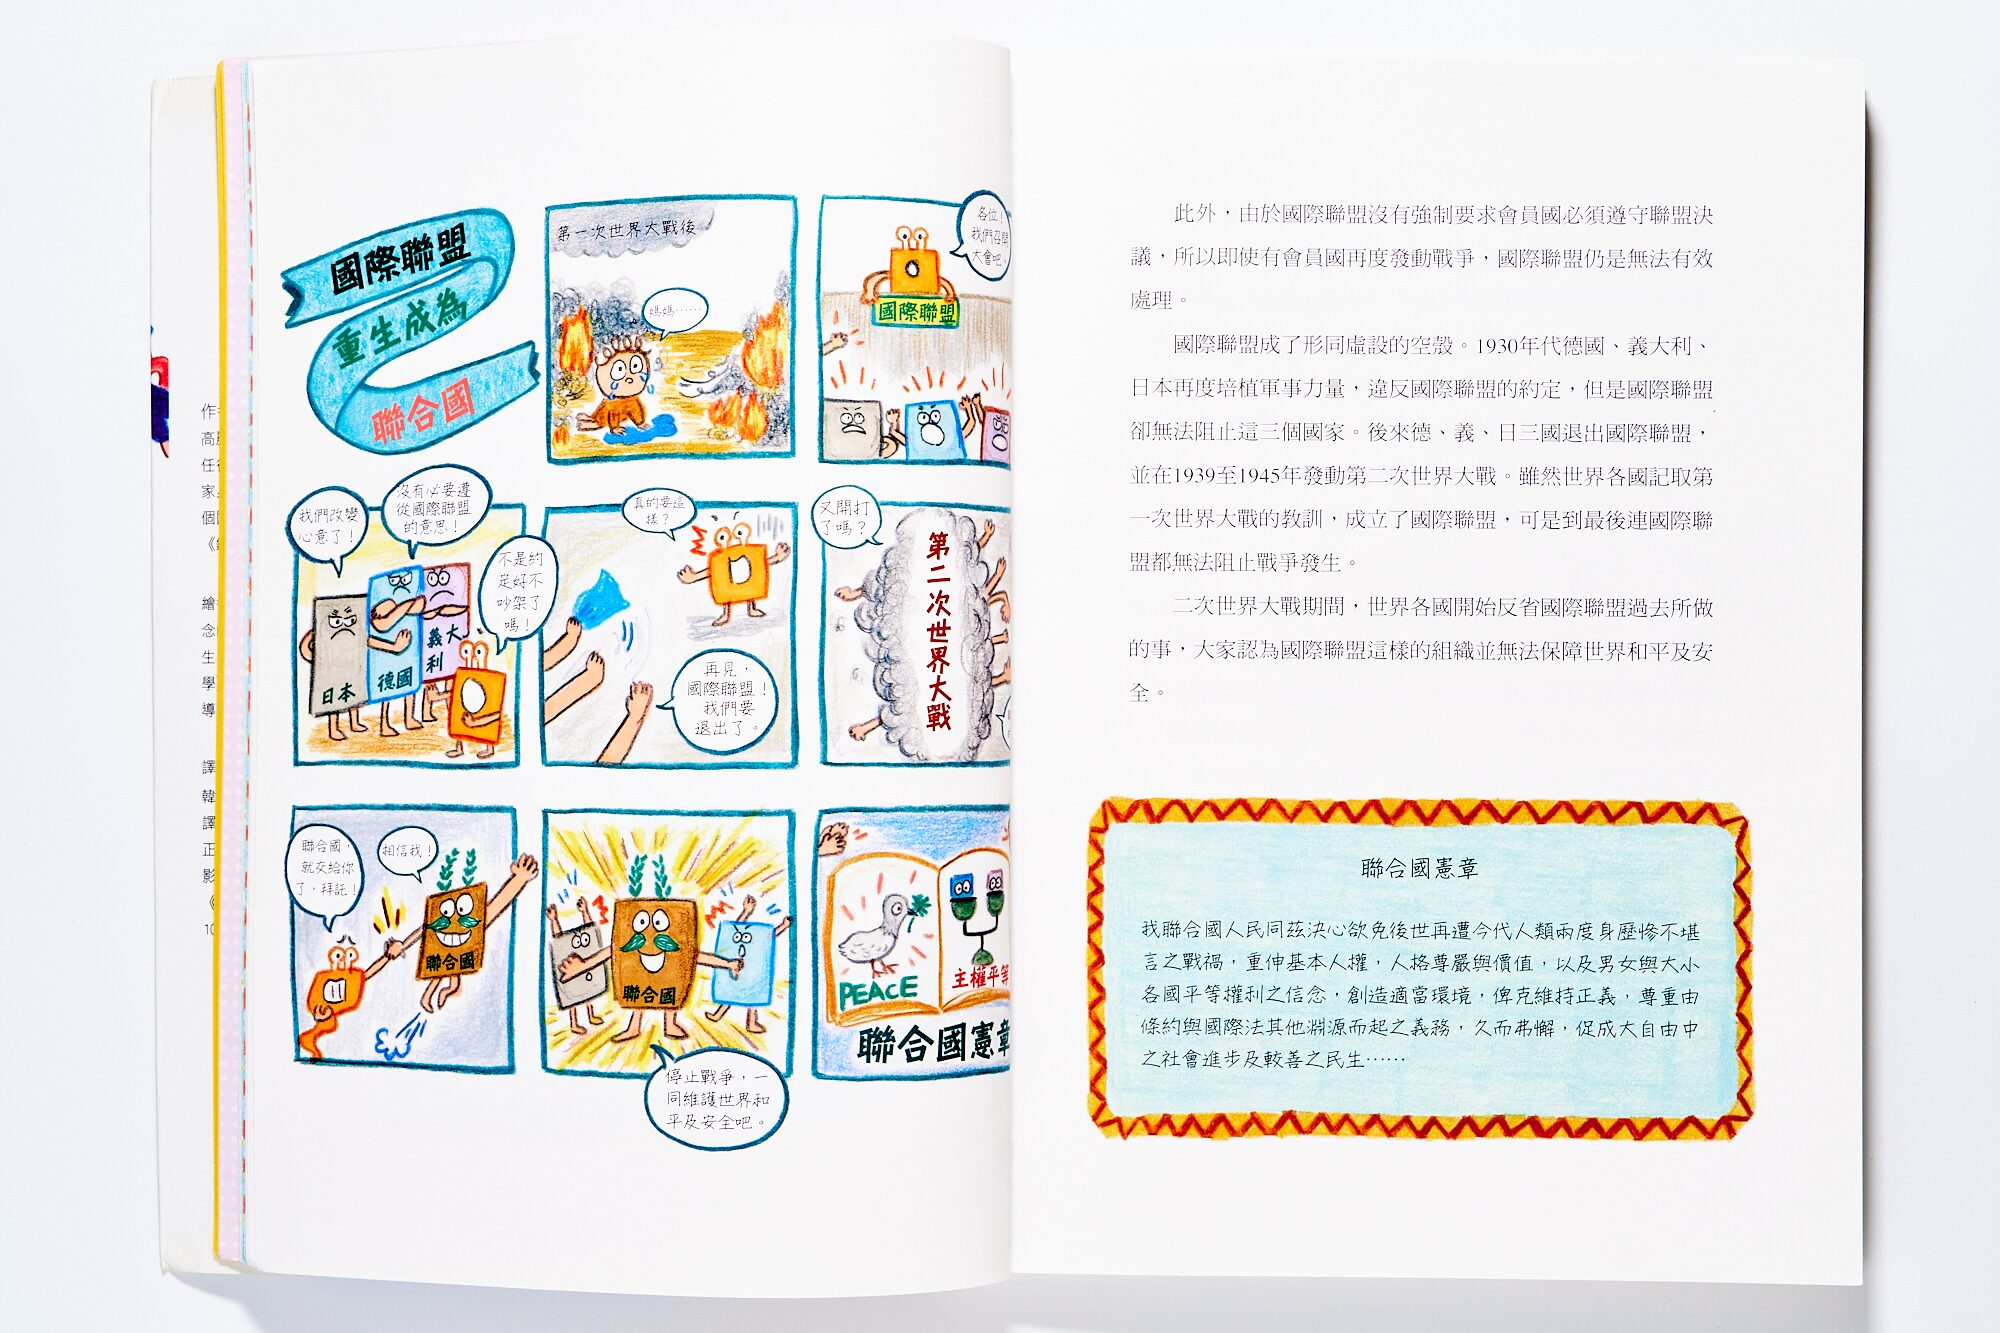 國際聯盟
重生成為
聯合國
第一次世界大戰後
媽媽……
各位！
我們召開
大會吧。
國際聯盟
我們改變
心意了！
沒有必要遵
從國際聯盟
的意思！
不是約
定好不
吵架了
嗎！
日本
德國
義大
利
真的要這
樣？
再見，
國際聯盟！
我們要
退出了。
又開打
了嗎？
第二次世界大戰
聯合國，
就交給你
了，拜託！
相信我！
聯合國
聯合國
停止戰爭，一
同維護世界和
平及安全吧。
PEACE
主權平等
聯合國憲章
此外，由於國際聯盟沒有強制要求會員國必須遵守聯盟決
議，所以即使有會員國再度發動戰爭，國際聯盟仍是無法有效
處理。
國際聯盟成了形同虛設的空殼。1930年代德國、義大利、
日本再度培植軍事力量，違反國際聯盟的約定，但是國際聯盟
卻無法阻止這三個國家。後來德、義、日三國退出國際聯盟，
並在1939至1945年發動第二次世界大戰。雖然世界各國記取第
一次世界大戰的教訓，成立了國際聯盟，可是到最後連國際聯
盟都無法阻止戰爭發生。
二次世界大戰期間，世界各國開始反省國際聯盟過去所做
的事，大家認為國際聯盟這樣的組織並無法保障世界和平及安
全。
聯合國憲章
我聯合國人民同茲決心欲免後世再遭今代人類兩度身歷慘不堪
言之戰禍，重伸基本人權，人格尊嚴與價值，以及男女與大小
各國平等權利之信念，創造適當環境，俾克維持正義，尊重由
條約與國際法其他淵源而起之義務，久而弗懈，促成大自由中
之社會進步及較善之民生……
作
高
任
家
個
《
繪
念
生
學
導
譯
韓
譯
正
影
《
10